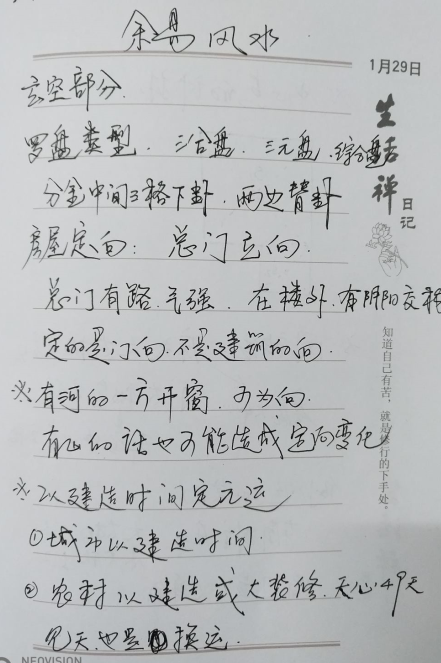 余易风水
1月29日
生活禅
日记
玄空部分.
罗盘类型. 三合盘. 三元盘. 综合盘
分金中间3格下卦. 两边替卦
房屋定向: 总门立向.
总门有路.气强. 在楼外.有阴阳交
定的是门向.不是建筑的向.
※有河的一方开窗. 可为向.
有山的话也可能造成定向变化
※以建造时间定元运
①城市以建造时间.
②农村以建造或大装修.天心.49天
见天也是换运.
知道自己有苦，就是修行的下手处。
NEOVISION